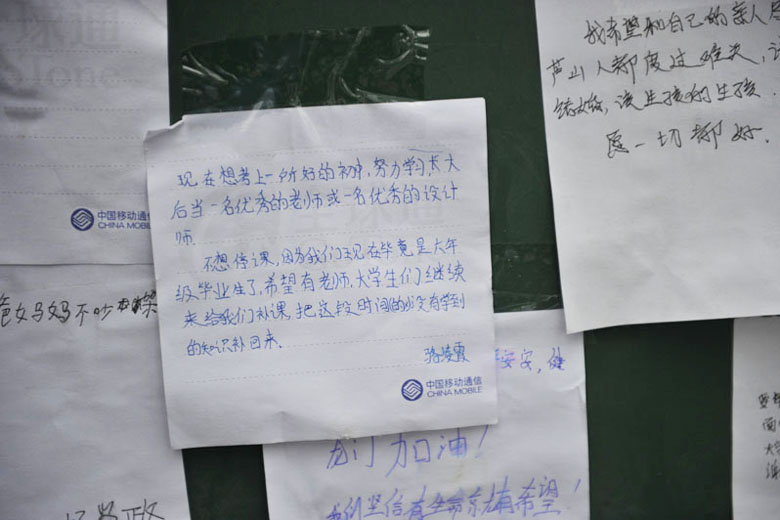 我希望和自己的亲人
芦山人都度过难关,
结婚,该生孩的生孩.
愿一切都好.
中国移动通信
CHINA MOBILE
现在想考上一所好的初中,努力学习,长大
后当一名优秀的老师或一名优秀的设计
师.
不想停课,因为我们现在毕竟是大年
级毕业生了,希望有老师,大学生们继续
来给我们补课,把这段时间的没有学到
的知识补回来.
中国移动通信
CHINA MOBILE
妈不吵
安,健
龙门加油!
我们坚信有生命就有希望!